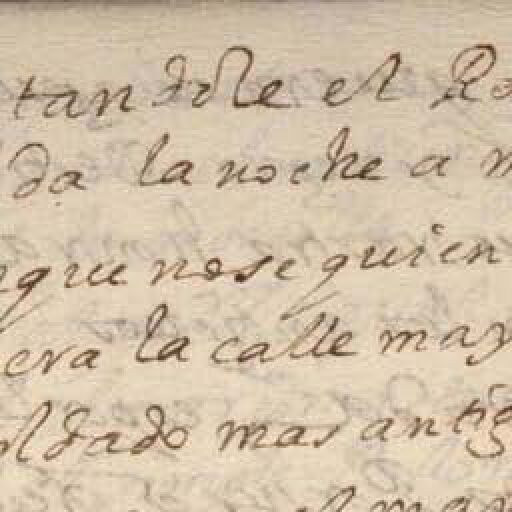 tandole el Ro
da la noche a m
que no se quien
era la calle may
oldado mas antig
el may